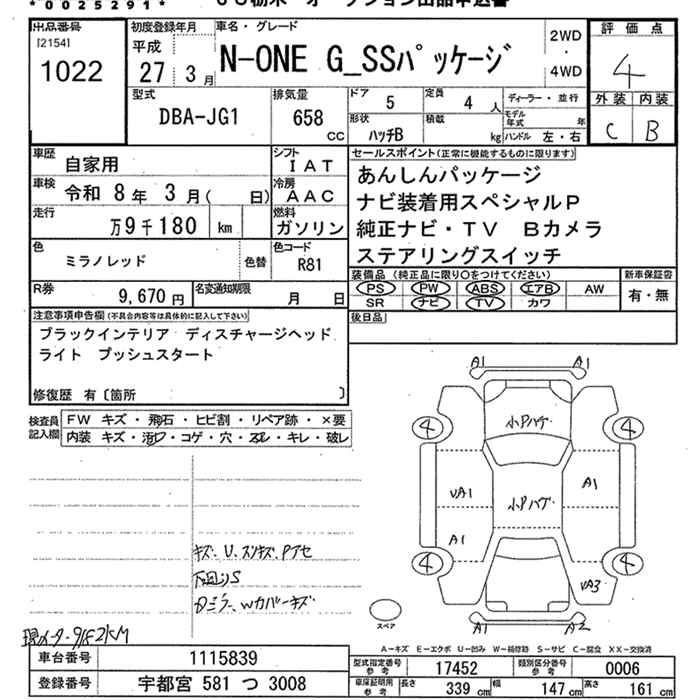 *00025291*
出品番号
[2154]
1022
初度登録年月
平成
27 3月
車名・グレード
N-ONE G_SSパッケージ
2WD
・
4WD
評価点
4
外装 内装
C B
型式
DBA-JG1
排気量
658
CC
ドア
5
定員
4 人
ディーラー・並行
形状
ハッチB
積載
kg
モデル年式 年
ハンドル 左・右
車歴
自家用
シフト
IAT
車検
令和 8年 3月( 日)
冷房
AAC
走行
万9千180 km
燃料
ガソリン
色
ミラノレッド
色替
色コード
R81
R券
9,670円
名変通知期限
月 日
セールスポイント(正常に機能するものに限ります)
あんしんパッケージ
ナビ装着用スペシャルP
純正ナビ・TV Bカメラ
ステアリングスイッチ
装備品 (純正品に限り○をつけてください)
PS PW ABS エアB AW
SR ナビ TV カワ
新車保証書
有・無
後日品
注意事項申告欄(不具合内容等は具体的に記入して下さい)
ブラックインテリア ディスチャージヘッド
ライト プッシュスタート
修復歴 有〔箇所 〕
検査員
記入欄
FW キズ・飛石・ヒビ割・リペア跡・×要
内装 キズ・汚れ・コゲ・穴・スレ・キレ・破レ
A1 A1
小Pハゲ
4 4
A1
UA1
小Pハゲ
A1
4 4
UA3
A1 A2
スペア
キズ、U、スリキズ、Pアセ
下回りS
Dミラー、Wカバーキズ
A-キズ E-エクボ U-凹み W-補修跡 S-サビ C-腐食 XX-交換済
車台番号
1115839
登録番号
宇都宮 581 つ 3008
型式指定番号
参考
17452
類別区分番号
参考
0006
車庫証明用
参考
長さ 339cm 幅 147cm 高さ 161cm